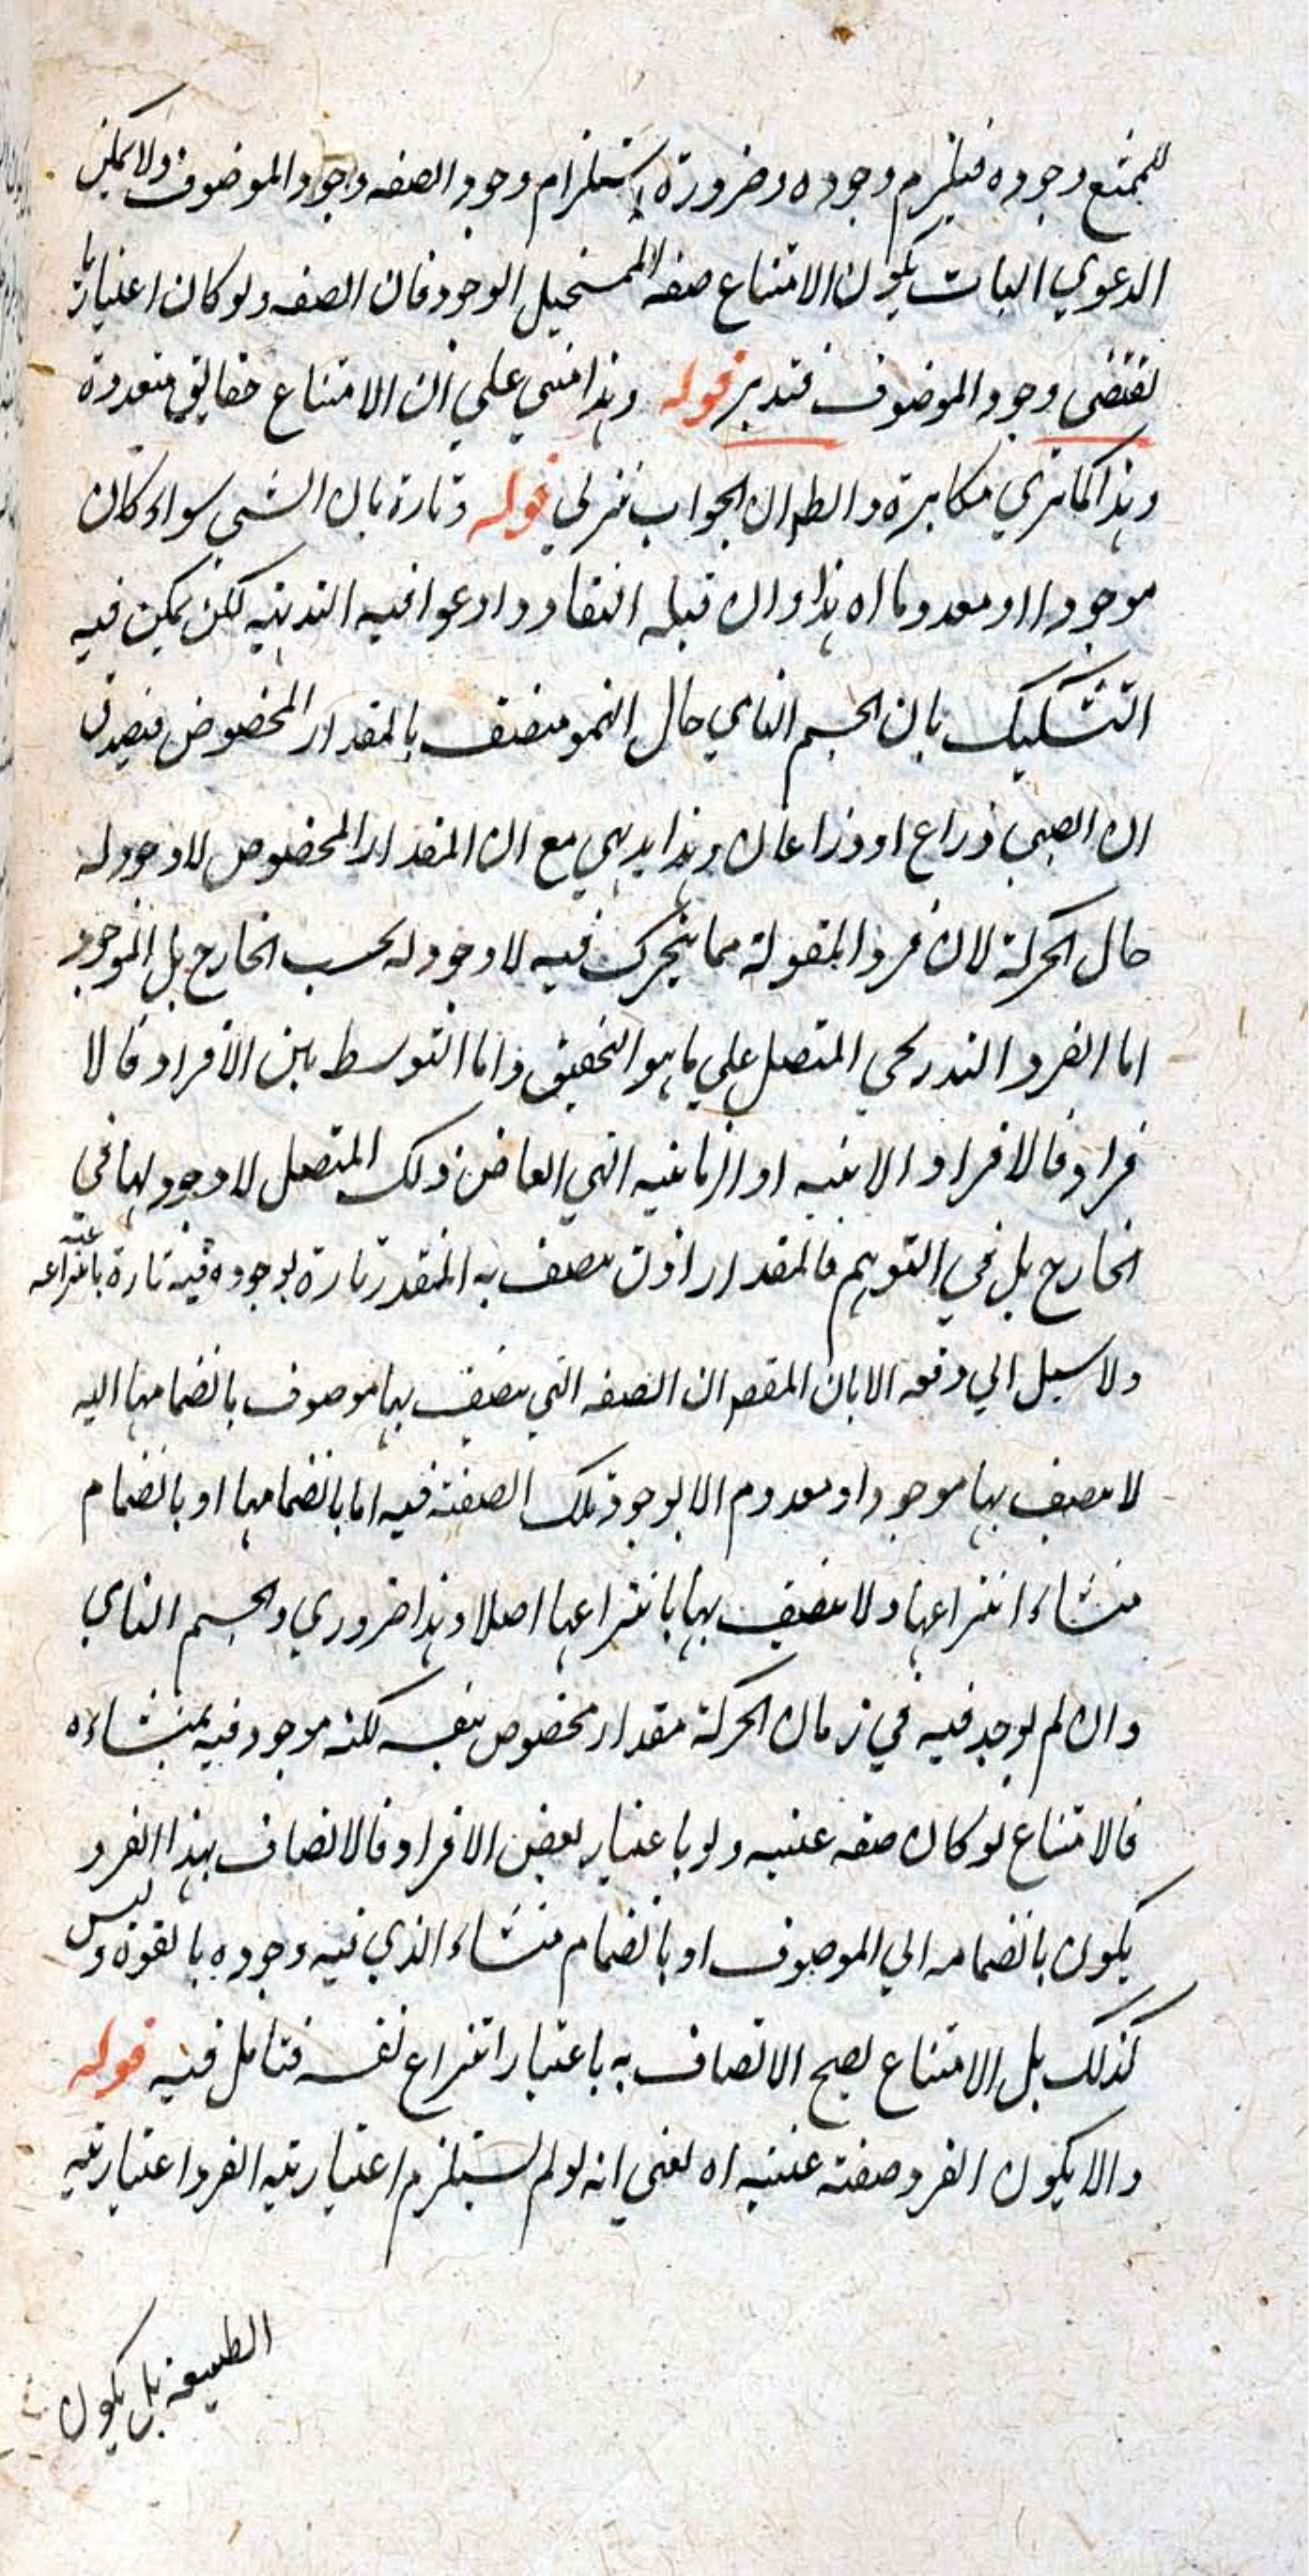 للممتنع وجوده فيلزم وجوده وضرورة استلزام وجود الصفه وجود الموصوف ولا يمكن
الدعوي البات بكون الامتناع صفه للمستحيل الوجود فان الصفه ولو كان اعتباريا
تقتضى وجود الموصوف فتدبر قوله وهذا مبني علي ان الامتناع حقايق متعددة
وهذا كما تري مكابرة والظ ان الجواب تنزلي قوله وتارة بان الشي سواء كان
موجودا او معدوما اه هذا وان قبله النقاد وادعوا فيه البديهيه لكن يمكن فيه
التشكيك بان الجسم النامي حال النمو متصف بالمقدار المخصوص فيصدق
ان الصبي ذراع او ذراعان وهذا بديهي مع ان المقدار المخصوص لا وجود له
حال الحركة لان فرد المقولة مما يتحرك فيه لا وجود له بحسب الخارج بل الموجود
اما الفرد التدريجي المتصل علي ما هو التحقيق واما التوسط بين الأفراد فالا
فراد فالافراد الانيه او الزمانيه التي ابعاض ذلك المتصل لا وجود لها في
الخارج بل في التوهم فالمقدار اذن يتصف به المتقدر تارة لوجوده فيه تارة بانتزاعه عنه
ولا سبيل الي دفعه الا بان المقص ان الصفه التي يتصف بها موصوف بانضمامها اليه
لا يتصف بها موجود او معدوم الا بوجود تلك الصفته فيه اما بانضمامها او بانضمام
منشاء انتزاعها ولا يتصف بها بانتزاعها اصلا وهذا ضروري والجسم النامي
وان لم يوجد فيه في زمان الحركة مقدار مخصوص بنفسه لكنه موجود فيه بمنشاءه
فالامتناع لو كان صفه عينيه ولو باعتبار بعض الافراد فالاتصاف بهذا الفرد
يكون بانضمامه الي الموصوف او بانضمام منشاء الذي فيه وجوده بالقوة وليس
كذلك بل الامتناع يصح الاتصاف به باعتبار انتزاع نفسه فتامل فيه قوله
والا يكون الفرد صفته عينيه اه يعني انه لو لم يستلزم اعتباريته الفرد اعتباريه
الطبيعه بل يكون